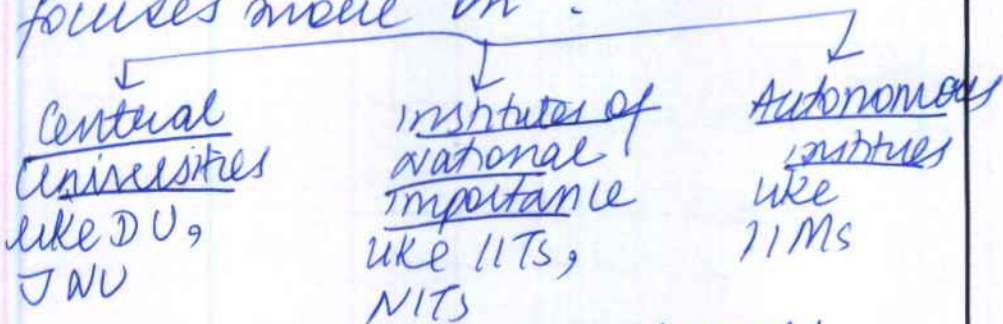 focuses more on :
Central
Universities
like DU,
JNU
institutes of
national
importance
like IITs,
NITs
Autonomous
institues
like
IIMs